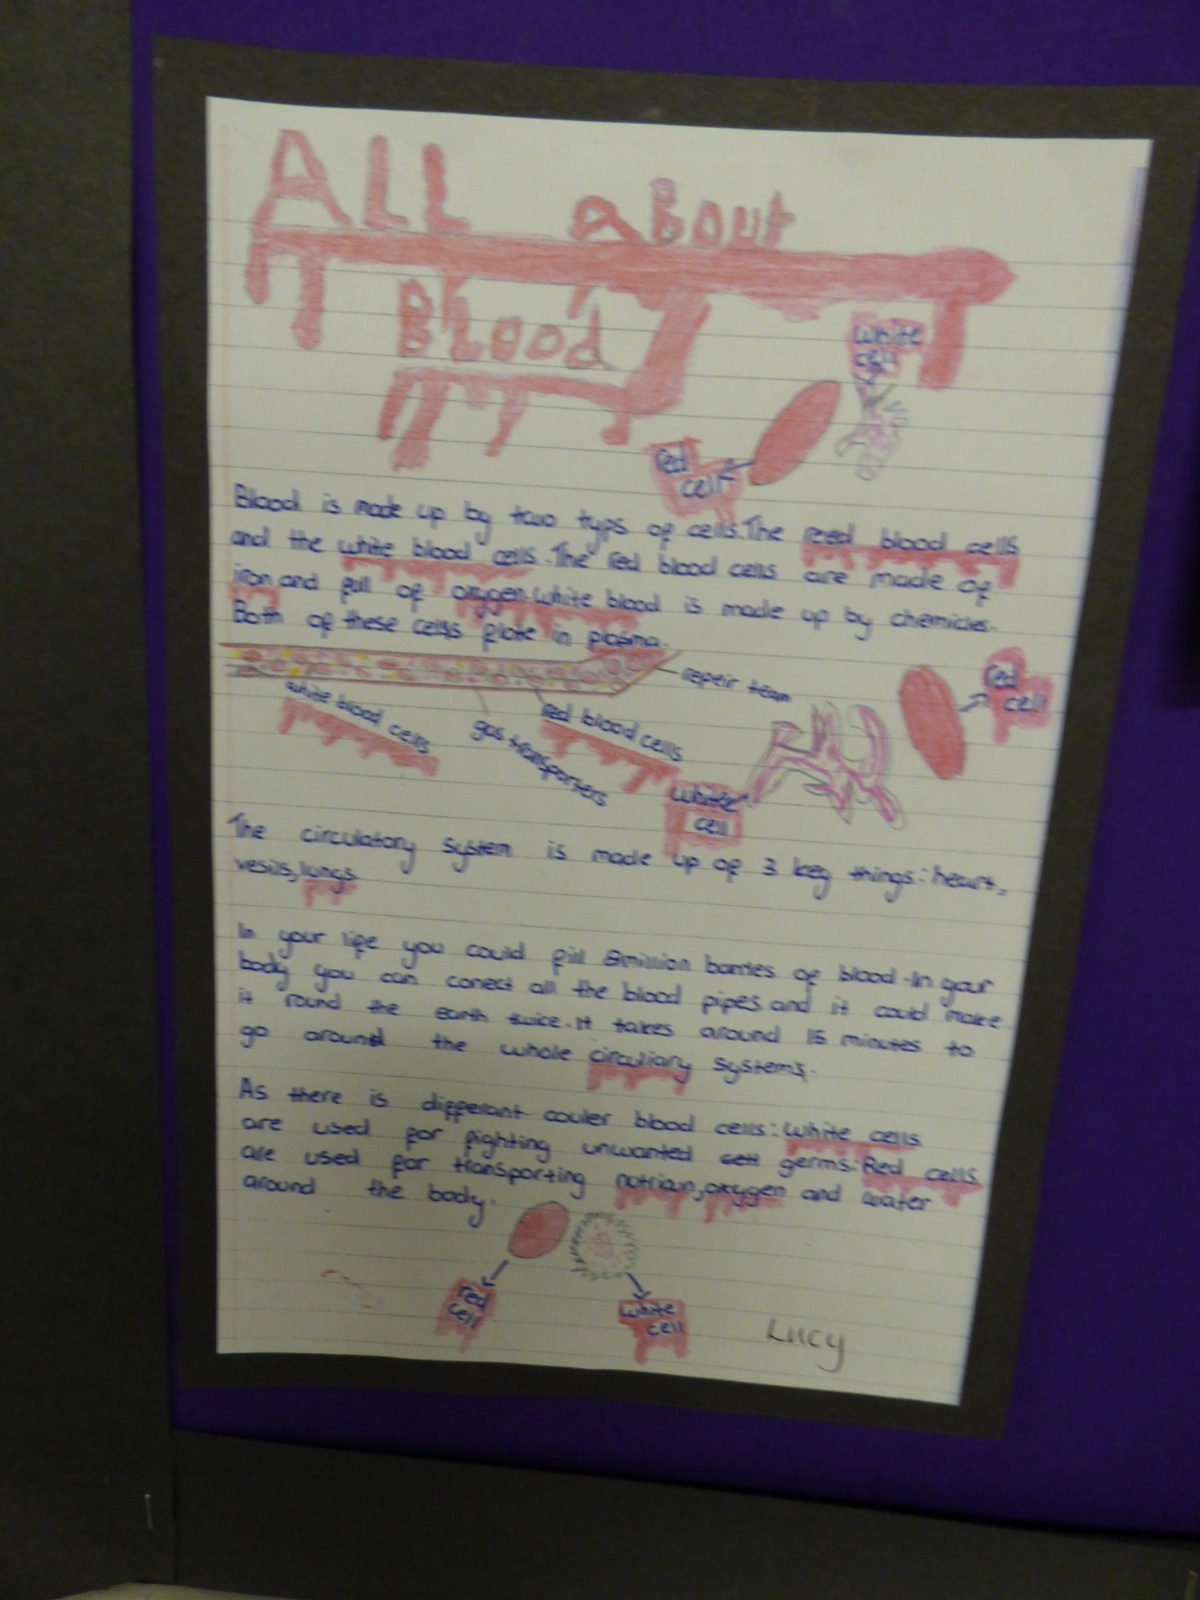 ALL aBout
Blood
White
cell
Red
cell
Blood is made up by two typs of cells. The reed blood cells
and the white blood cells. The red blood cells are made of
iron and full of oxygen. White blood is made up by chemicles.
Both of these cells flote in plasma.
repeir team
white blood cells
gas transporters
red blood cells
Red
cell
White
cell
The circulatory system is made up of 3 key things: heart,
vesils, lungs
In your life you could fill 8million barrles of blood. In your
body you can conect all the blood pipes and it could make
it round the earth twice. It takes around 15 minutes to
go around the whole circuliary systems.
As there is differant couler blood cells: White cells
are used for fighting unwanted cell germs: Red cells
are used for transporting nutrian, oxygen and water
around the body.
red
cell
White
cell
Lucy